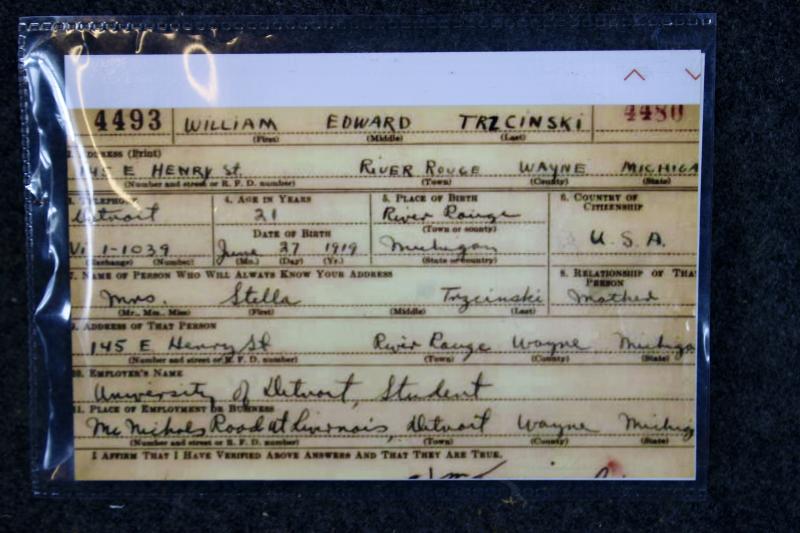 4493 WILLIAM EDWARD TRZCINSKI 4480
(First) (Middle) (Last)
ADDRESS (Print)
145 E HENRY St. RIVER ROUGE WAYNE MICHIGA
(Number and street or R. F. D. number) (Town) (County) (State)
3. TELEPHONE 4. AGE IN YEARS 5. PLACE OF BIRTH 6. COUNTRY OF
CITIZENSHIP
Detroit 21 River Rouge
DATE OF BIRTH (Town or county)
Vi 1-1039 June 27 1919 Michigan U. S. A.
(Exchange) (Number) (Mo.) (Day) (Yr.) (State or country)
7. NAME OF PERSON WHO WILL ALWAYS KNOW YOUR ADDRESS 8. RELATIONSHIP OF THA
PERSON
Mrs. Stella Trzcinski Mother
(Mr., Mrs., Miss) (First) (Middle) (Last)
9. ADDRESS OF THAT PERSON
145 E Henry St River Rouge Wayne Michiga
(Number and street or R. F. D. number) (Town) (County) (State)
10. EMPLOYER'S NAME
University of Detroit, Student
11. PLACE OF EMPLOYMENT OR BUSINESS
Mc Nichols Road at Livernois, Detroit Wayne Michig
(Number and street or R. F. D. number) (Town) (County) (State)
I AFFIRM THAT I HAVE VERIFIED ABOVE ANSWERS AND THAT THEY ARE TRUE.